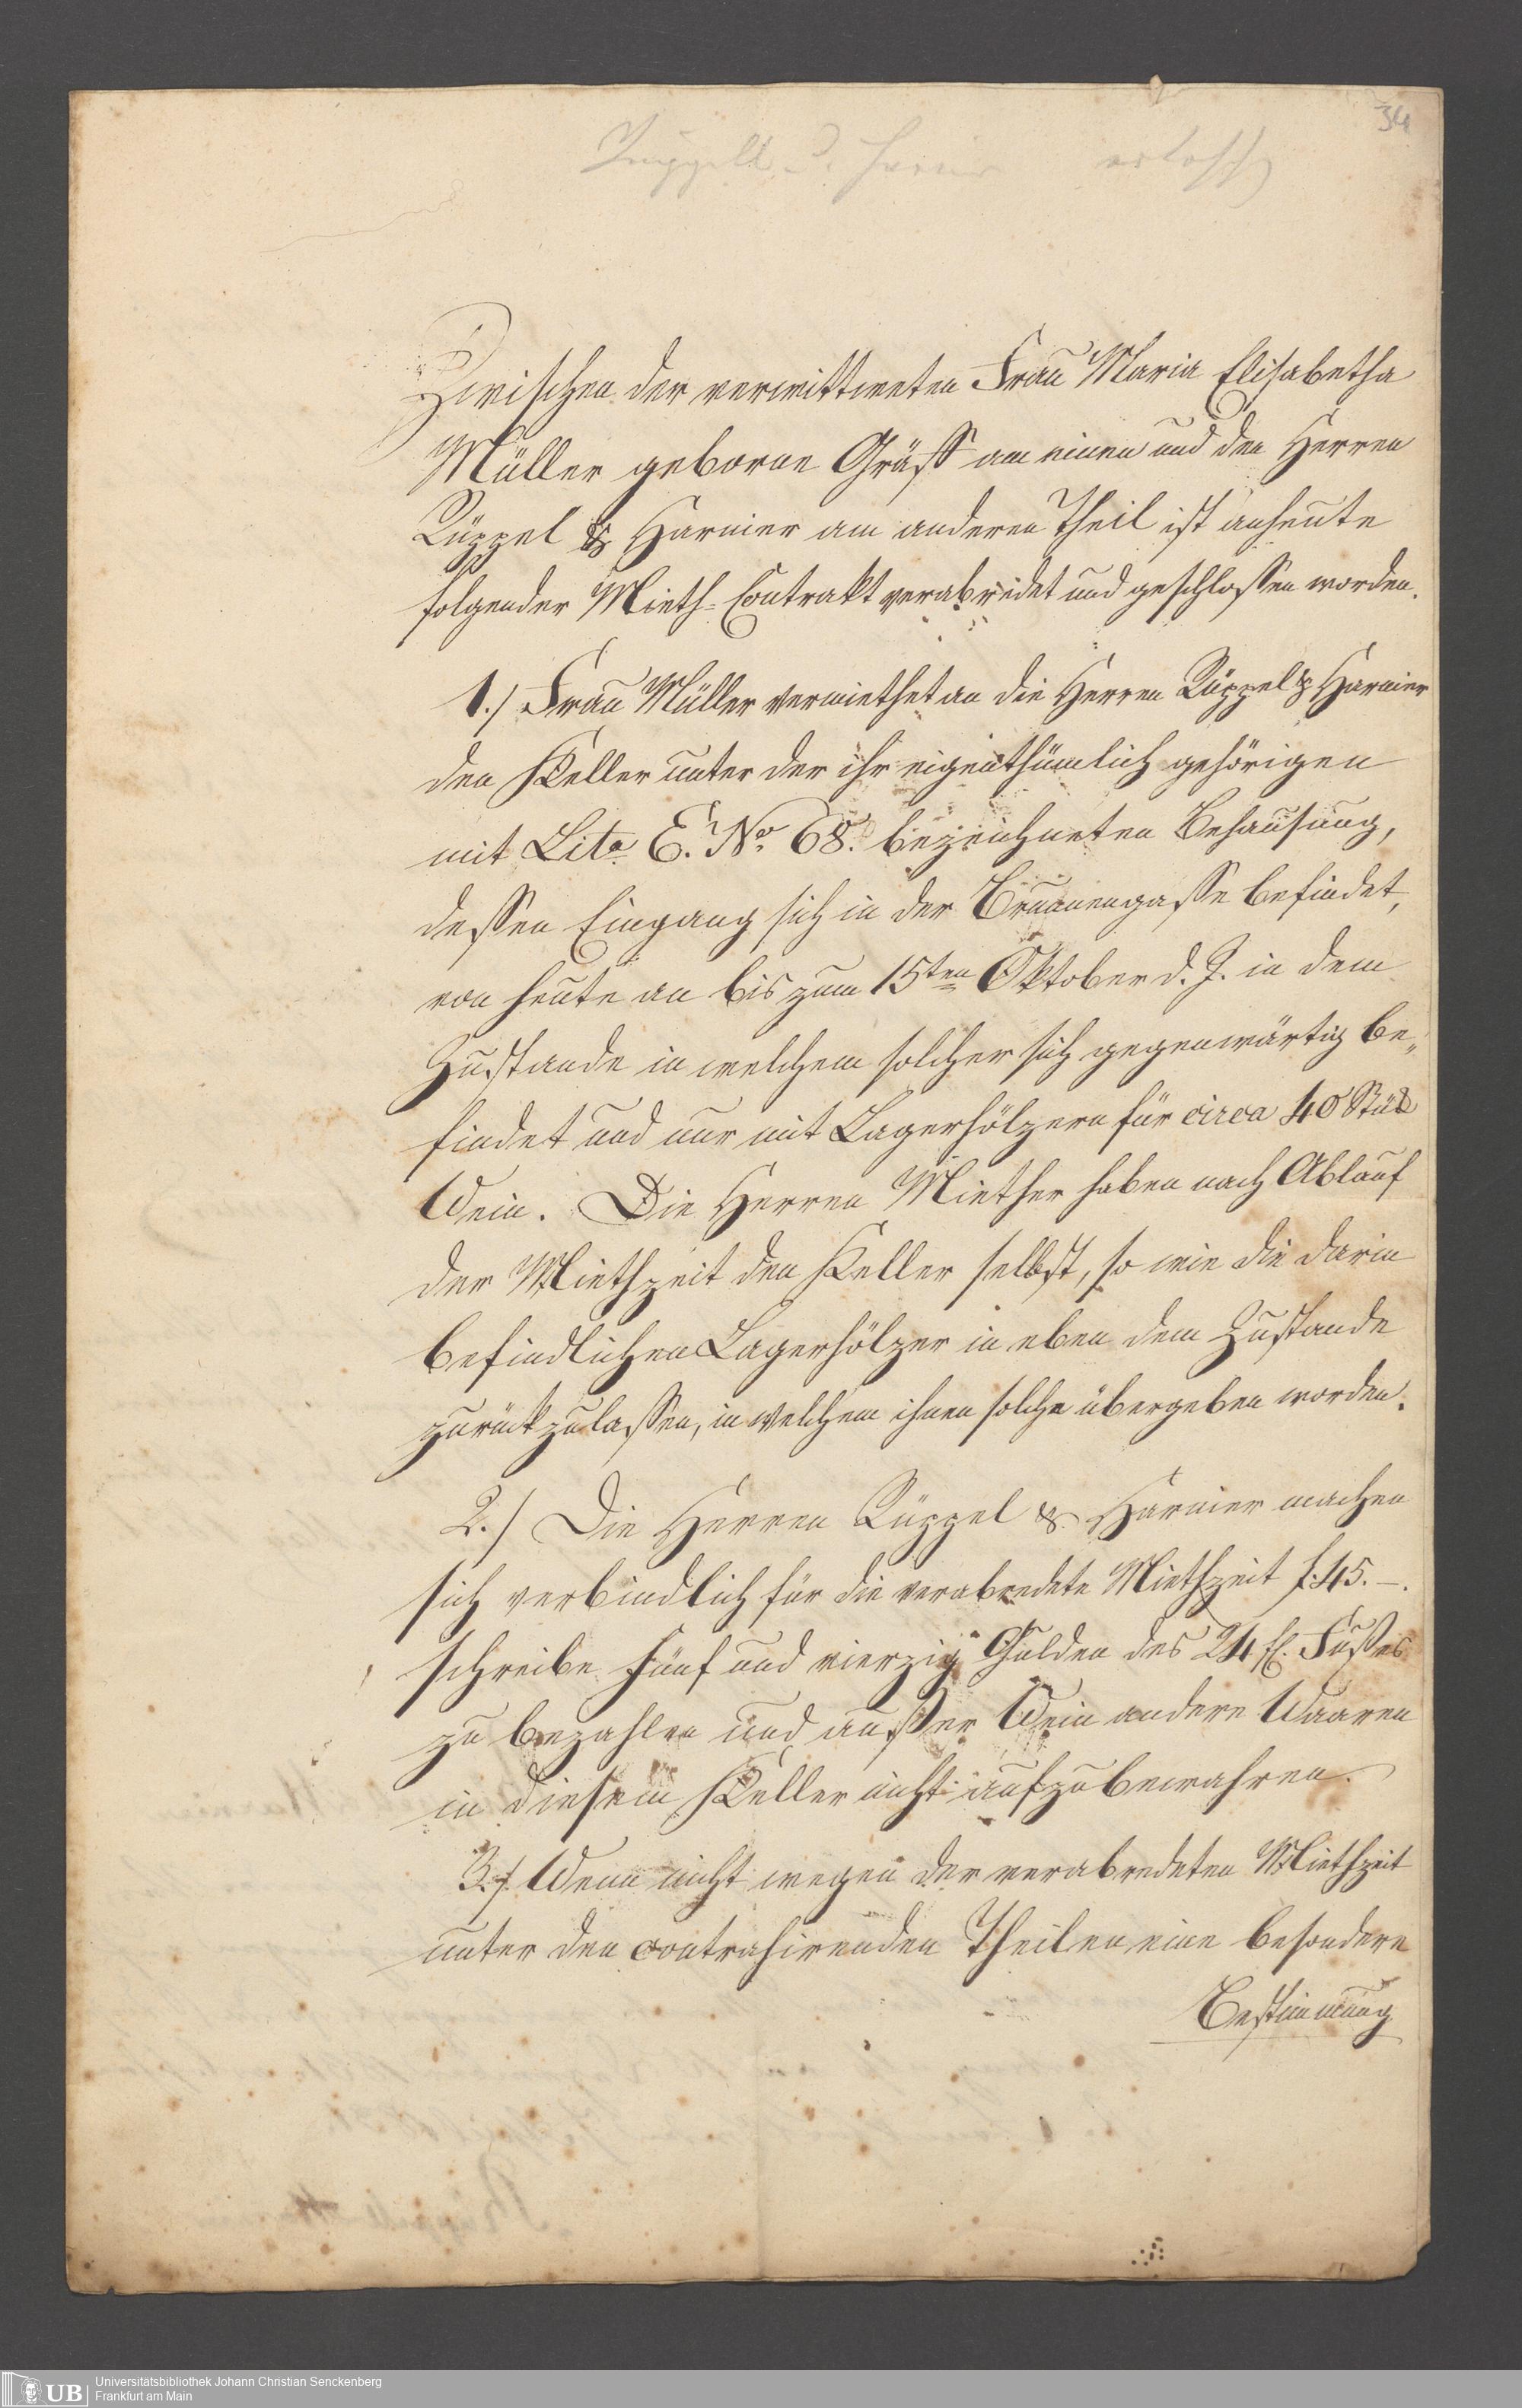 34
Rüppell & Harnier erlosch
Zwischen der verwittweten Frau Maria Elisabetha
Müller geborne Gräff am einen und den Herren
Rüppel & Harnier am anderen Theil ist anheute
folgender Mieth-Contrakt verabredet und geschlossen worden.
1./ Frau Müller vermiethet an die Herren Rüppel & Harnier
den Keller unter der ihr eigenthümlich gehörigen
mit Lita. E. No. 68. bezeichneten Behausung,
dessen Eingang sich in der Brunnengasse befindet,
von heute an bis zum 15ten Oktober d. J. in dem
Zustande in welchem solcher sich gegenwärtig be„
findet und nur mit Lagerhölzern für circa 40 Stük
Wein. Die Herren Miether haben nach Ablauf
der Miethzeit den Keller selbst, so wie die darin
befindlichen Lagerhölzer in eben dem Zustande
zurückzulassen, in welchem ihnen solche übergeben worden.
2./ Die Herren Rüppel & Harnier machen
sich verbindlich für die verabredete Miethzeit f. 45.–.
schreibe fünf und vierzig Gulden des 24 fl. Fußes
zu bezahlen und außer Wein andere Waaren
in diesem Keller nicht aufzubewahren.
3./ Wenn nicht wegen der verabredeten Miethzeit
unter den contrahirenden Theilen eine besondere
Bestimmung
UB
Universitätsbibliothek Johann Christian Senckenberg
Frankfurt am Main